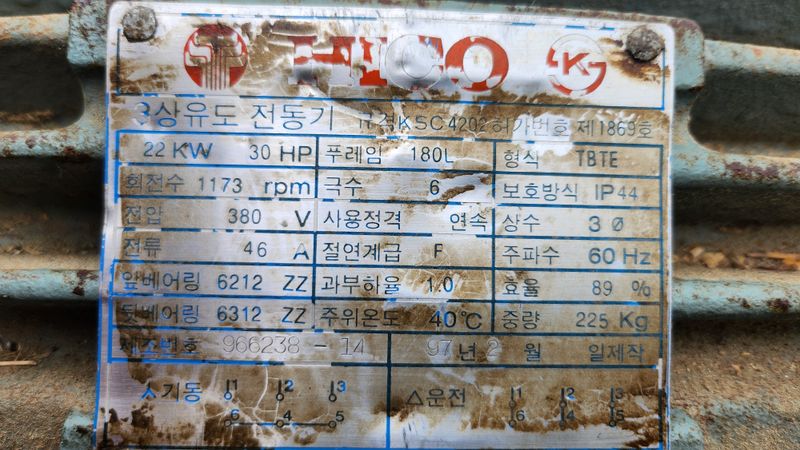 HICO
K
3상유도 전동기 규격KSC4202 허가번호 제1869호
22 KW 30 HP 푸레임 180L 형식 TBTE
회전수 1173 rpm 극수 6 보호방식 IP44
전압 380 V 사용정격 연속 상수 3 Ø
전류 46 A 절연계급 F 주파수 60 Hz
앞베어링 6212 ZZ 과부하율 1.0 효율 89 %
뒷베어링 6312 ZZ 주위온도 40℃ 중량 225 Kg
제조번호 966238-14 97년 2월 일제작
人기동 1 2 3 △운전 1 2 3
6 4 5 6 4 5